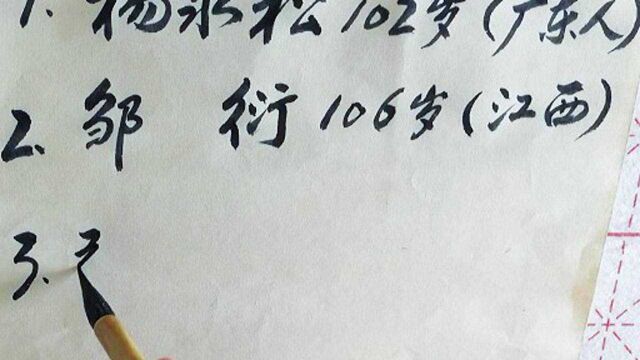 1. 杨永松 102岁(广东人)
2. 邹 衍 106岁(江西)
3.